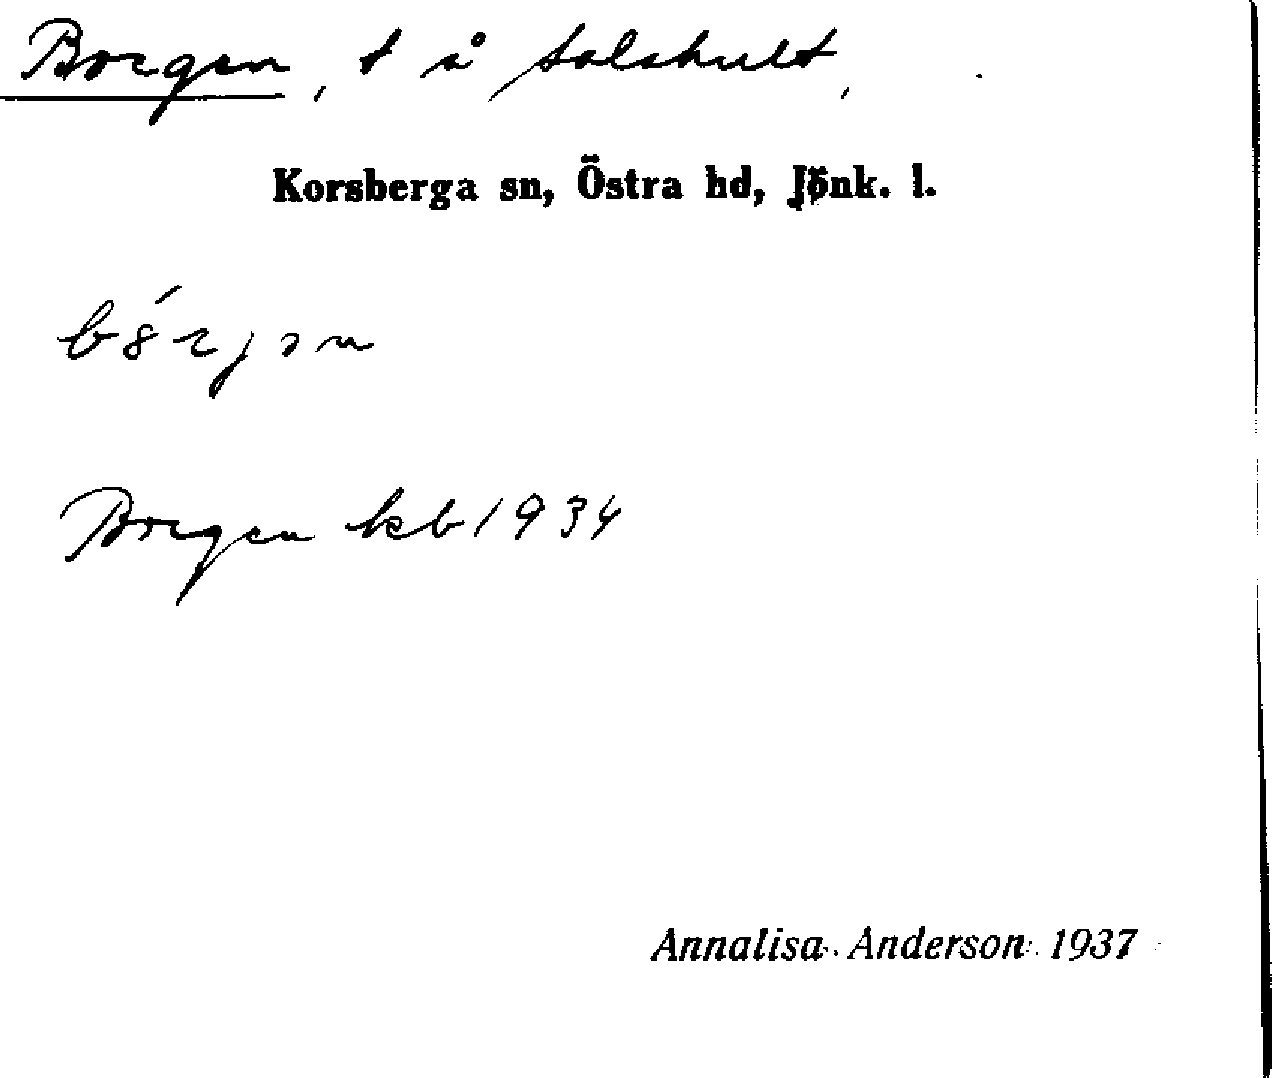 Borgen, t å Salshult,
Korsberga sn, Östra hd, Jönk. l.
Borgen kb 1934
Annalisa Anderson 1937